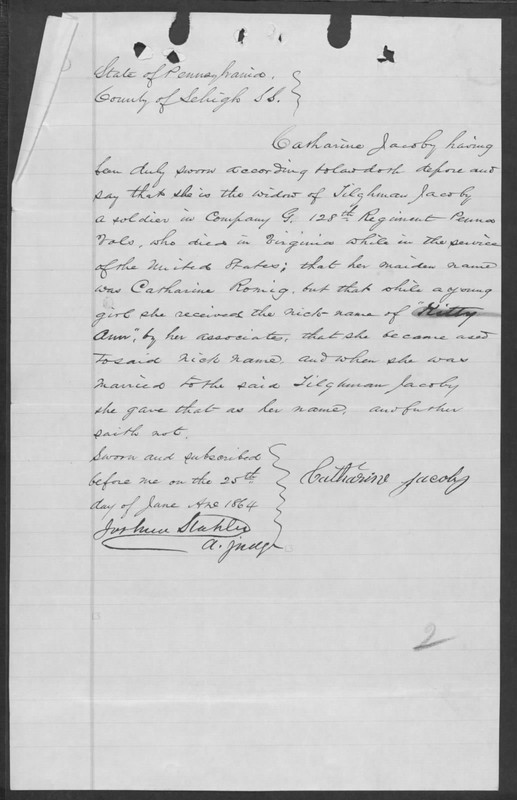 State of Pennsylvania.
County of Lehigh SS.
Catharine Jacoby having
been duly sworn according to law doth depose and
say that she is the widow of Tilghman Jacoby
a soldier in Company G. 128th Regiment Penna
Vols, who died in Virginia while in the service
of the United States; that her maiden name
was Catharine Romig, but that while a young
girl she received the nick-name of "Kitty
Ann", by her associates, that she became used
to said nick name, and when she was
married to the said Tilghman Jacoby
she gave that as her name, and further
saith not.
Sworn and subscribed
before me on the 25th
day of June 1864
Catharine Jacoby
Joshua Stahler
a. judge
2